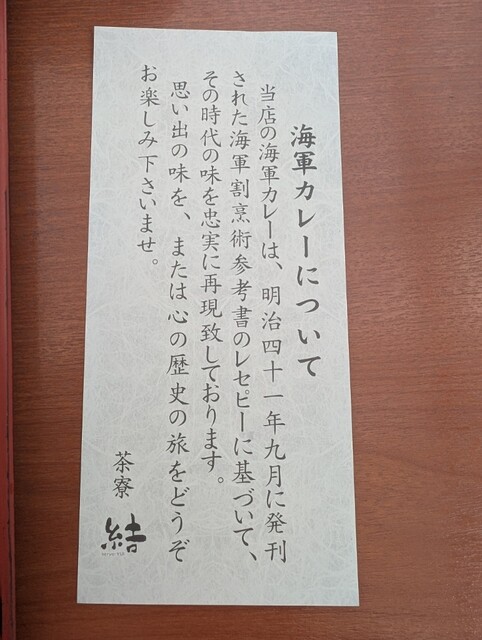 海軍カレーについて
当店の海軍カレーは、明治四十一年九月に発刊
された海軍割烹術参考書のレセピーに基づいて、
その時代の味を忠実に再現致しております。
思い出の味を、または心の歴史の旅をどうぞ
お楽しみ下さいませ。
茶寮
結